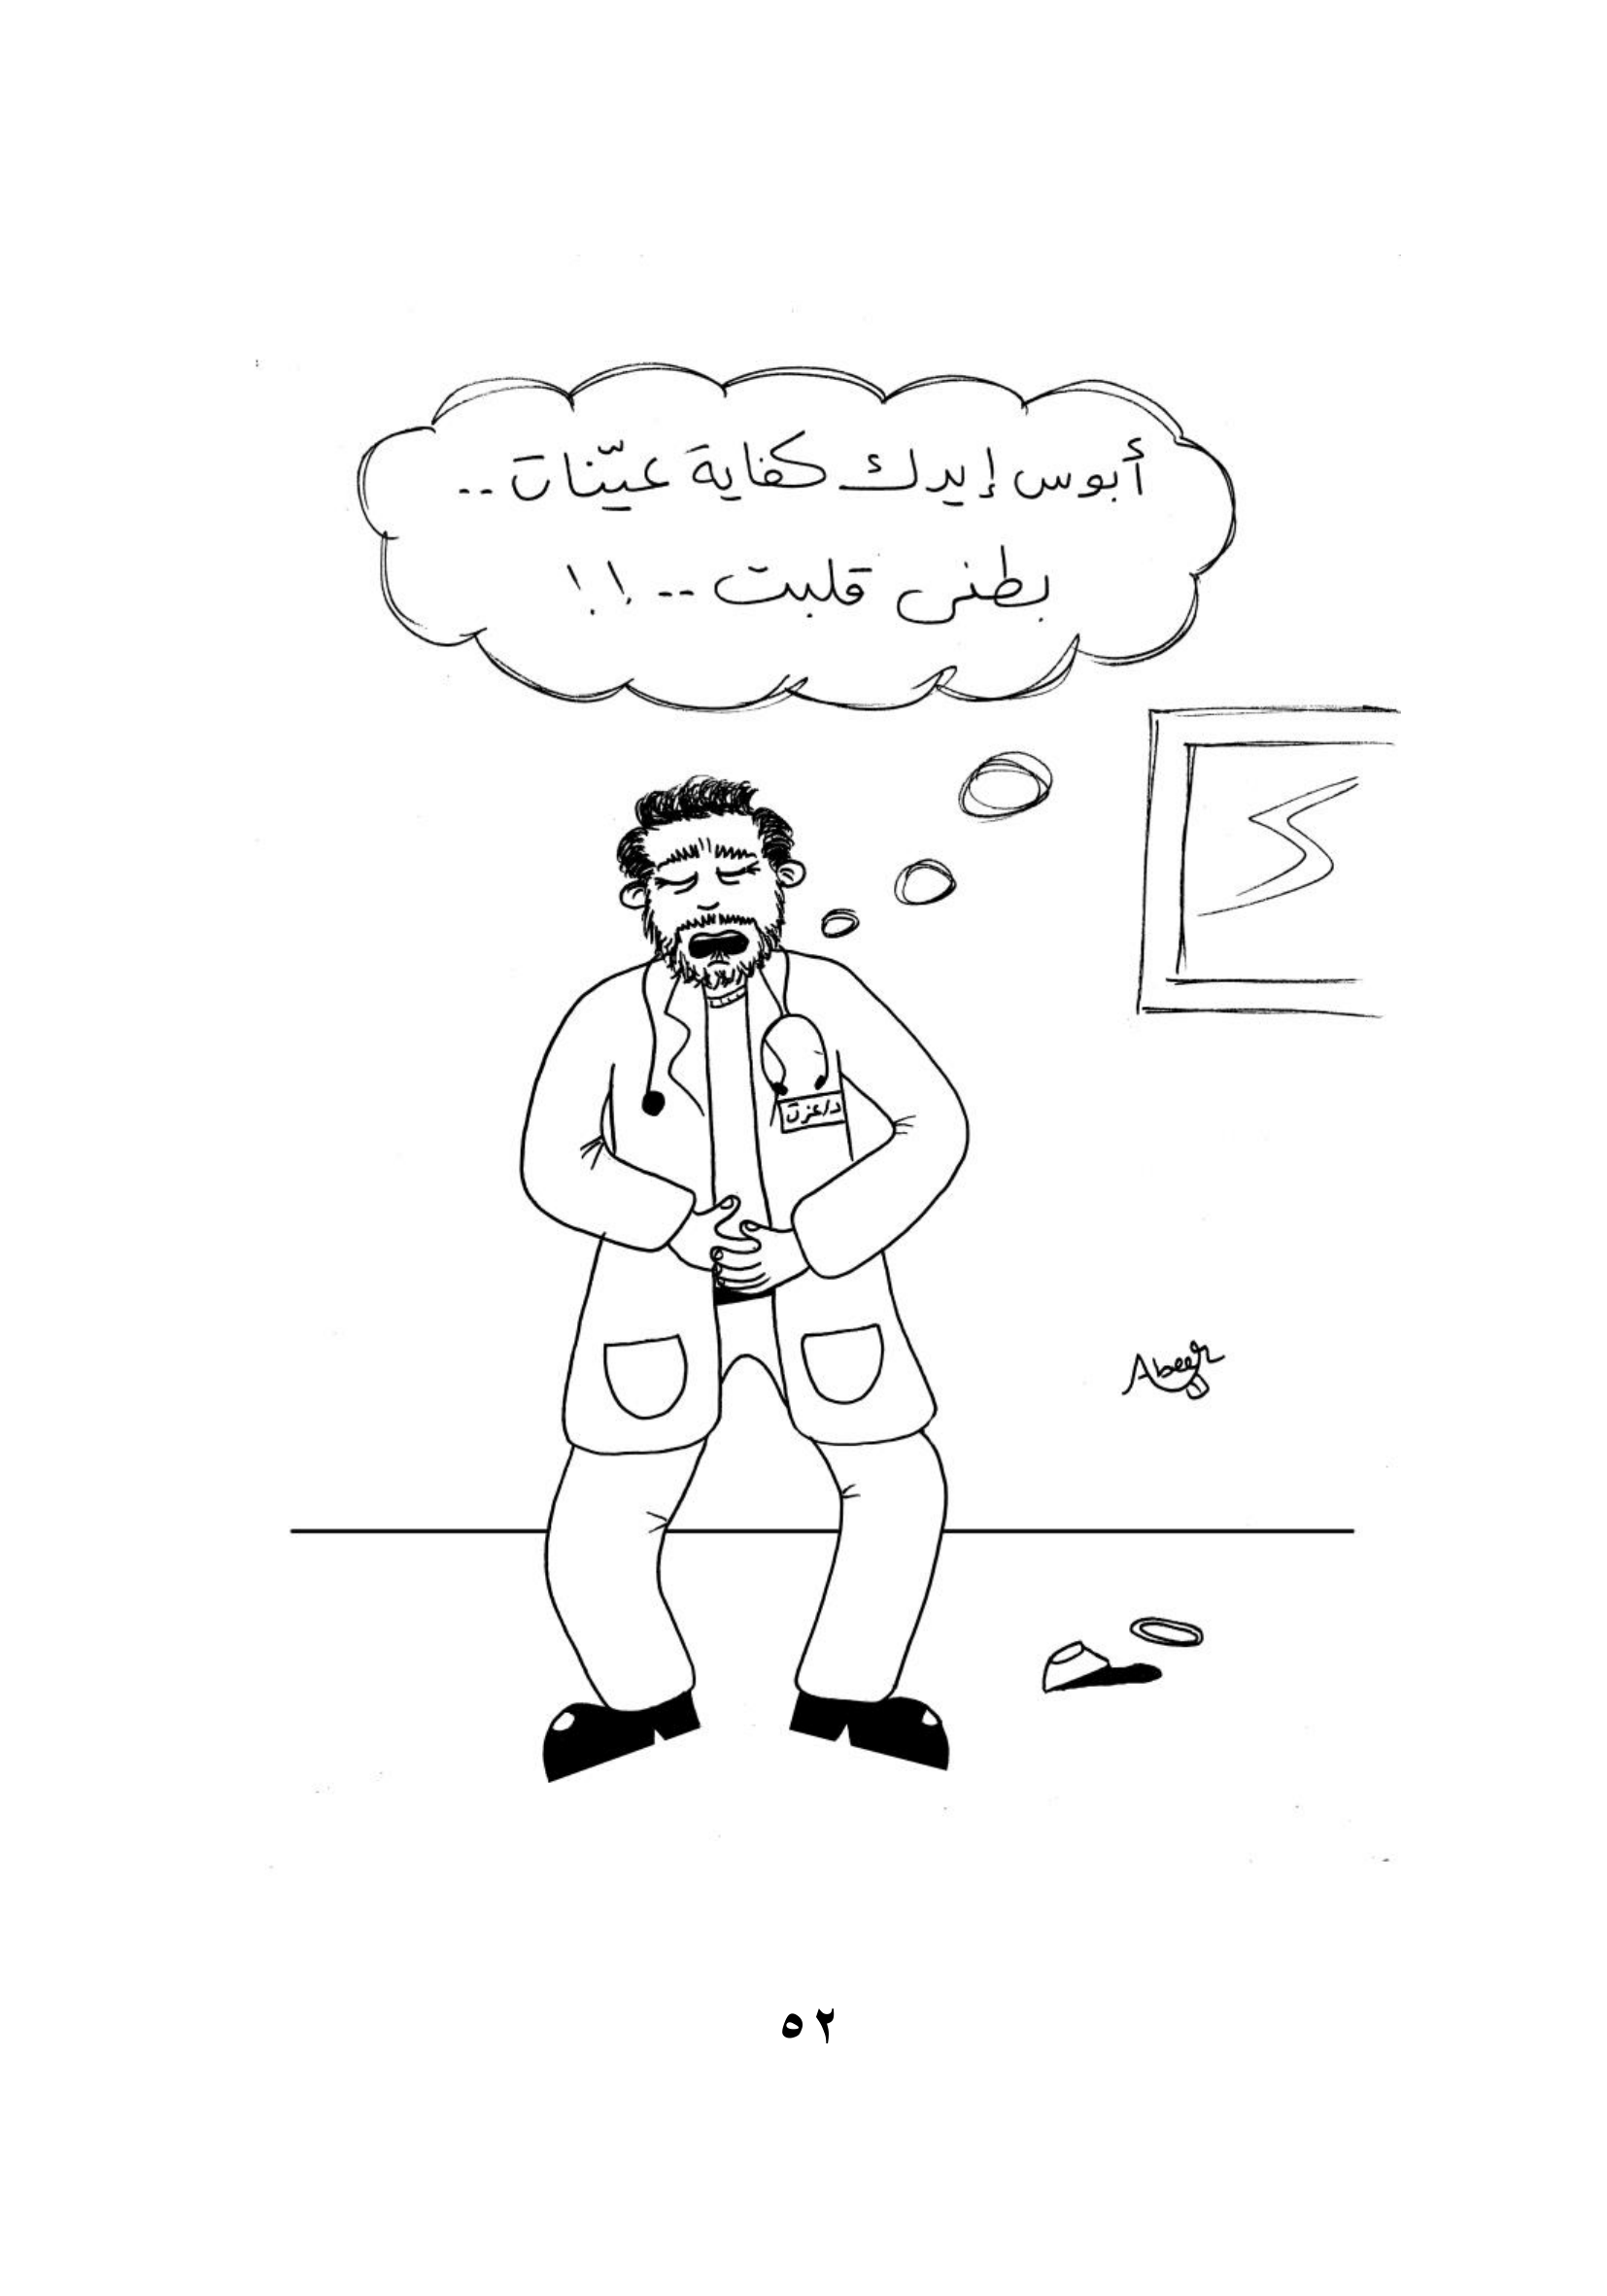 أبوس إيدك كفاية عيّنات..
بطنى قلبت..!!
د/عزت
Abeer
٥٢